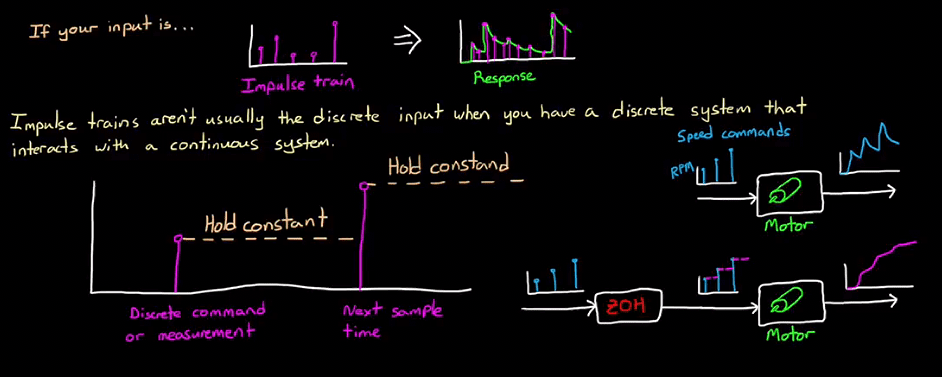 If your input is...
Impulse train
Response
Impulse trains aren't usually the discrete input when you have a discrete system that
interacts with a continuous system.
Hold constand
Hold constant
Discrete command
or measurement
Next sample
time
Speed commands
RPM
Motor
ZOH
Motor